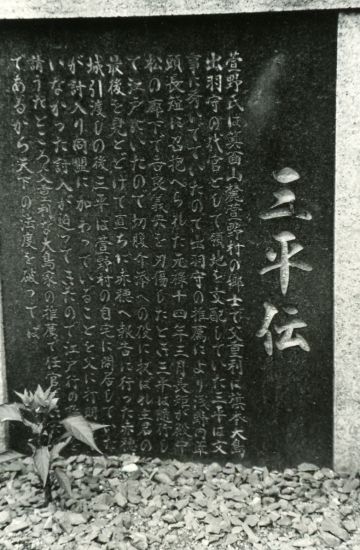 三平伝
萱野氏は箕面山麓萱野村の郷士で父重利は旗本大島
出羽守の代官として領地を支配していた三平は文
事に秀いでていたので出羽守の推薦により浅野内匠
頭長矩に召抱へられ元禄十四年三月長矩が殿中
松の廊下で吉良義央を刃傷したとき三平は随行し
て江戸にいたので切腹介錯への役に
最後を見とどけて直ちに赤穂へ報告に行った赤穂
城引渡しの後三平は萱野村の自宅に閉居していた
が討入り同盟に加わっていることを父に打明
いなかった討入が迫ってきたので江戸行の
請うたところ父重利は大島家の推薦で任官
であるから天下の法度を破っては